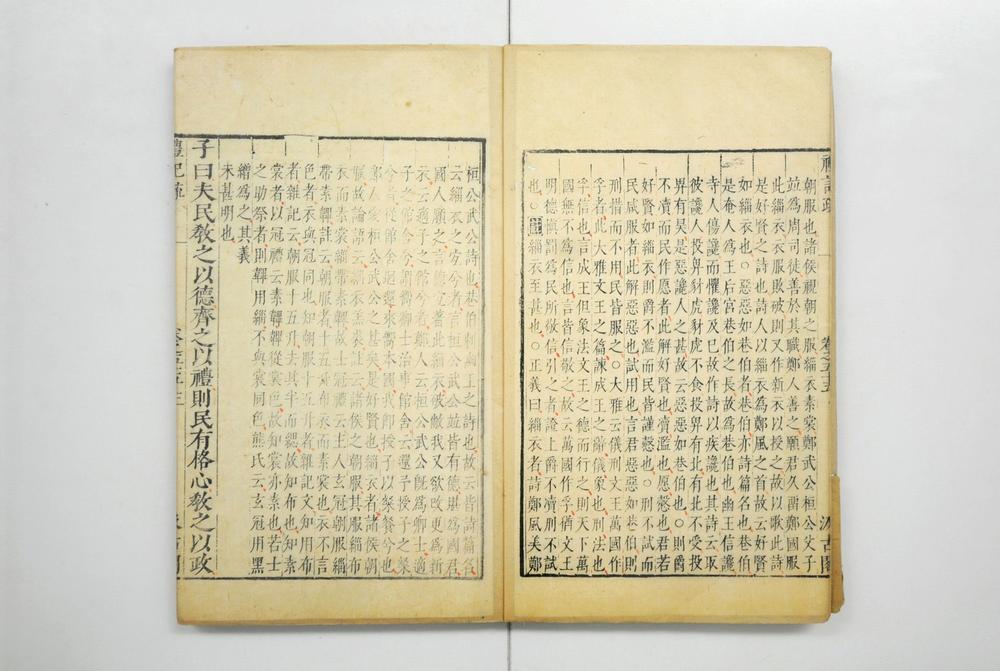 禮記疏 卷之五十五 汲古閣
朝服也諸侯視朝之服緇衣素裳鄭武公桓公父子
並為周司徒善於其職鄭人善之願君久留鄭國服
此緇衣衣服敗破則又作新衣以授之故以歌此詩
是好賢之詩也詩人以緇衣為鄭風之首故云好賢
如緇衣也○惡惡如巷伯者巷伯亦詩篇名也巷伯
是奄人為王后宮巷伯之長故為巷伯也幽王信讒
寺人傷讒而懼讒及已故作詩以疾讒也其詩云取
彼讒人投畀豺虎豺虎不食投畀有北有北不受投
畀有昊是惡讒人之甚故云惡惡如巷伯也○則爵
不瀆而民作愿者此解好賢也瀆濫也愿愨也君若
好賢如緇衣則爵不濫而民皆謹愨也○刑不試而
民咸服者此解惡惡也試用也言君惡惡如巷伯則
刑措而不用民皆服之○大雅云儀刑文王萬國作
孚者此大雅文王之篇諫成王之辭儀象也刑法也
孚信也言成王但象法文王之德而行之則天下萬
國無不為信也言皆信敬之故云萬國作孚猶文王
明德慎罰為民所信引之者證上爵不瀆刑不試
也○疏緇衣至甚也○正義曰緇衣者詩鄭風美鄭
桓公武公詩也巷伯刺幽王之詩也故云皆詩篇名
云緇衣之方兮者言桓公武公並皆有德堪為國君
國人願之言德宜著此緇衣破敝我又欲改更為新
衣云適子之館兮者鄭人云桓公武公既為卿士適
子之館舍卿士治事館舍云還予授子之粲
兮者從館舍迴還來嚮本國我即授子以粲餐兮也
鄭人愛桓公武公之甚矣是好賢也緇衣者諸侯朝
服故論語云緇衣羔裘註云諸侯之朝服其服緇布
衣而素裳緇帶素韠故士冠禮云主人玄冠朝服緇
帶素韠註云朝服者十五升布衣而素裳也衣不言
色者衣與冠同也知朝服十五升者雜記文知用布
者雜記云朝服十五升去其半而緦故知布也知素
裳者以冠禮云素韠韠從裳色故知裳亦素也若士
之助祭者則韠用緇不與裳同色熊氏云玄冠用黑
繒為之其義
未甚明也
子曰夫民教之以德齊之以禮則民有格心教之以政
禮記疏